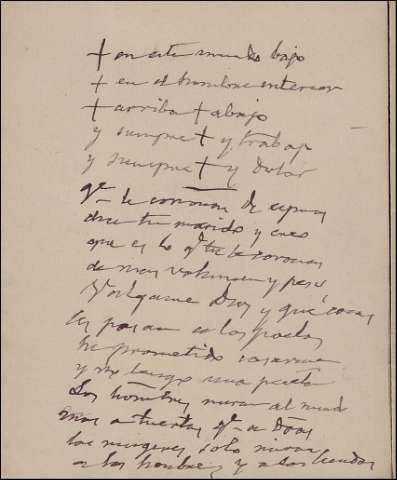 + en este mundo bajo
+ en el hombre interior
+ arriba + abajo
y siempre + y trabajo
y siempre + y dolor
qe te coronan de espinas
dice tu marido y creo
que es lo qe tu te coronas
de mas volumen y peso
Valgame Dios y qué cosas
les pasan a los poetas
he prometido casarme
y no tengo una peseta
Los hombres miran al mundo
mas a tuertas qe a Dios
las mugeres solo miran
a los hombres y a las tiendas